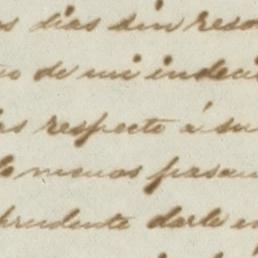 os dias sin reso
de mi indeci
as respecto á su
lo menos pasan
prudente darle